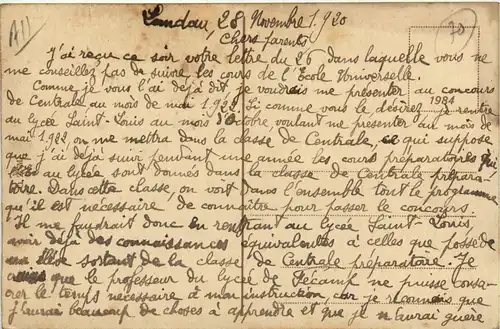 A11
Landau 28 Novembre 1920
20
Chers parents
J'ai reçu ce soir votre lettre du 26 dans laquelle vous ne
me conseillez pas de suivre les cours de l'Ecole Universelle.
Comme je vous l'ai déjà dit, je voudrais me présenter au concours
de Centrale au mois de mai 1922. Si comme vous le désirez je rentre
1984
au lycée Saint-Louis au mois d'Octobre, voulant me présenter au mois de
mai 1922, on me mettra dans la classe de Centrale, ce qui suppose
que j'ai déjà suivi pendant une année les cours préparatoires qui
au lycée sont donnés dans la classe de Centrale prépara-
toire. Dans cette classe, on voit dans l'ensemble tout le programme
qu'il est nécessaire de connaître pour passer le concours.
Il me faudrait donc en rentrant au lycée Saint-Louis,
avoir déjà des connaissances équivalentes à celles que possède
un élève sortant de la classe de Centrale préparatoire. Je
que le professeur du lycée de Fécamp ne puisse consa-
crer le temps nécessaire à mon instruction car je reconnais que
j'aurai beaucoup de choses à apprendre et que je n'aurai guère